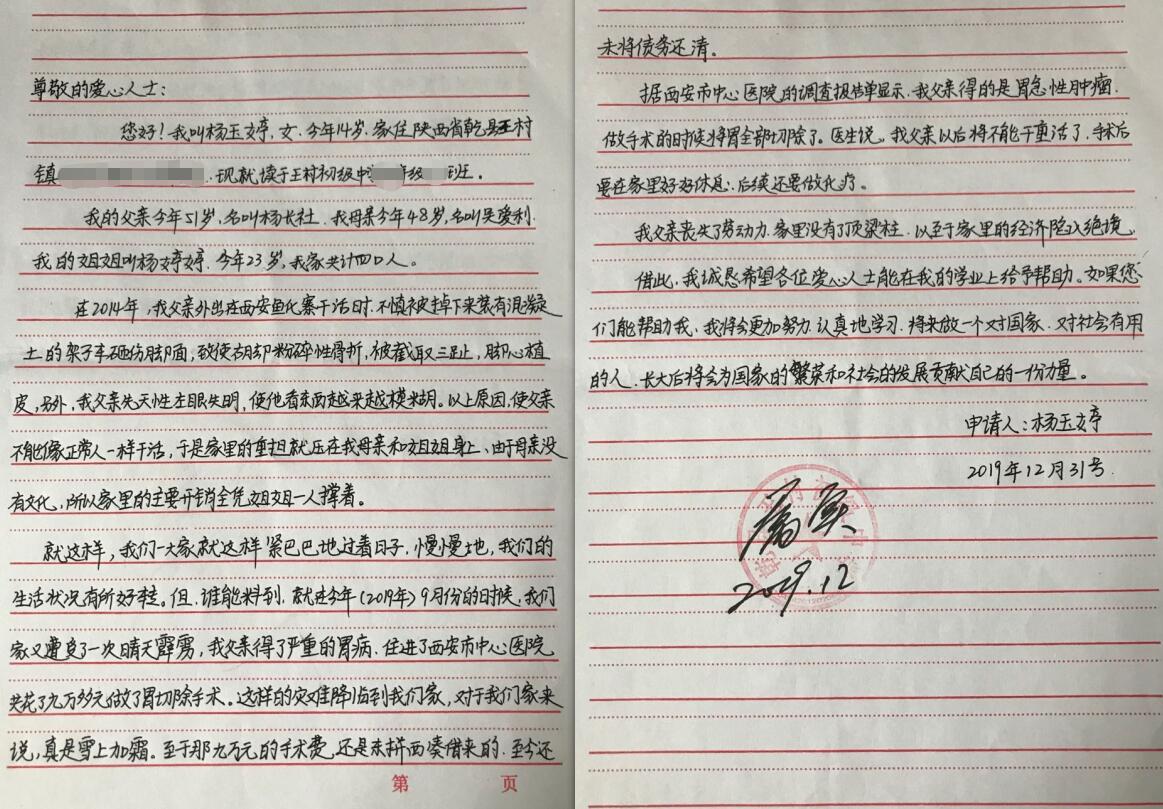 尊敬的爱心人士：
您好！我叫杨玉婷，女，今年14岁，家住陕西省乾县王村
镇 现就读于王村初级中 年级 班。
我的父亲今年51岁，名叫杨长社。我母亲今年48岁，名叫吴爱利
我的姐姐叫杨婷婷，今年23岁，我家共计四口人。
在2014年，我父亲外出在西安鱼化寨干活时，不慎被掉下来装有混凝
土的架子车砸伤脚面，致使右脚粉碎性骨折，被截取三趾，脚心植
皮，另外，我父亲先天性左眼失明，使他看东西越来越模糊。以上原因，使父亲
不能像正常人一样干活，于是家里的重担就压在我母亲和姐姐身上、由于母亲没
有文化，所以家里的主要开销全凭姐姐一人撑着。
就这样，我们一大家就这样紧巴巴地过着日子，慢慢地，我们的
生活状况有所好转。但，谁能料到，就在今年（2019年）9月份的时候，我们
家又遭受了一次晴天霹雳，我父亲得了严重的胃病，住进了西安市中心医院
共花了九万多元做了胃切除手术。这样的灾难降临到我们家，对于我们家来
说，真是雪上加霜。至于那九万元的手术费，还是东拼西凑借来的，至今还
第 页
未将债务还清。
据西安市中心医院的调查报告单显示，我父亲得的是胃急性肿瘤，
做手术的时候将胃全部切除了。医生说，我父亲以后将不能干重活了，手术后
要在家里好好休息，后续还要做化疗。
我父亲丧失了劳动力，家里没有了顶梁柱，以至于家里的经济陷入绝境，
借此，我诚恳希望各位爱心人士能在我的学业上给予帮助。如果您
们能帮助我，我将会更加努力、认真地学习，将来做一个对国家、对社会有用
的人，长大后将会为国家的繁荣和社会的发展贡献自己的一份力量。
申请人：杨玉婷
2019年12月31号
属实
2019.12